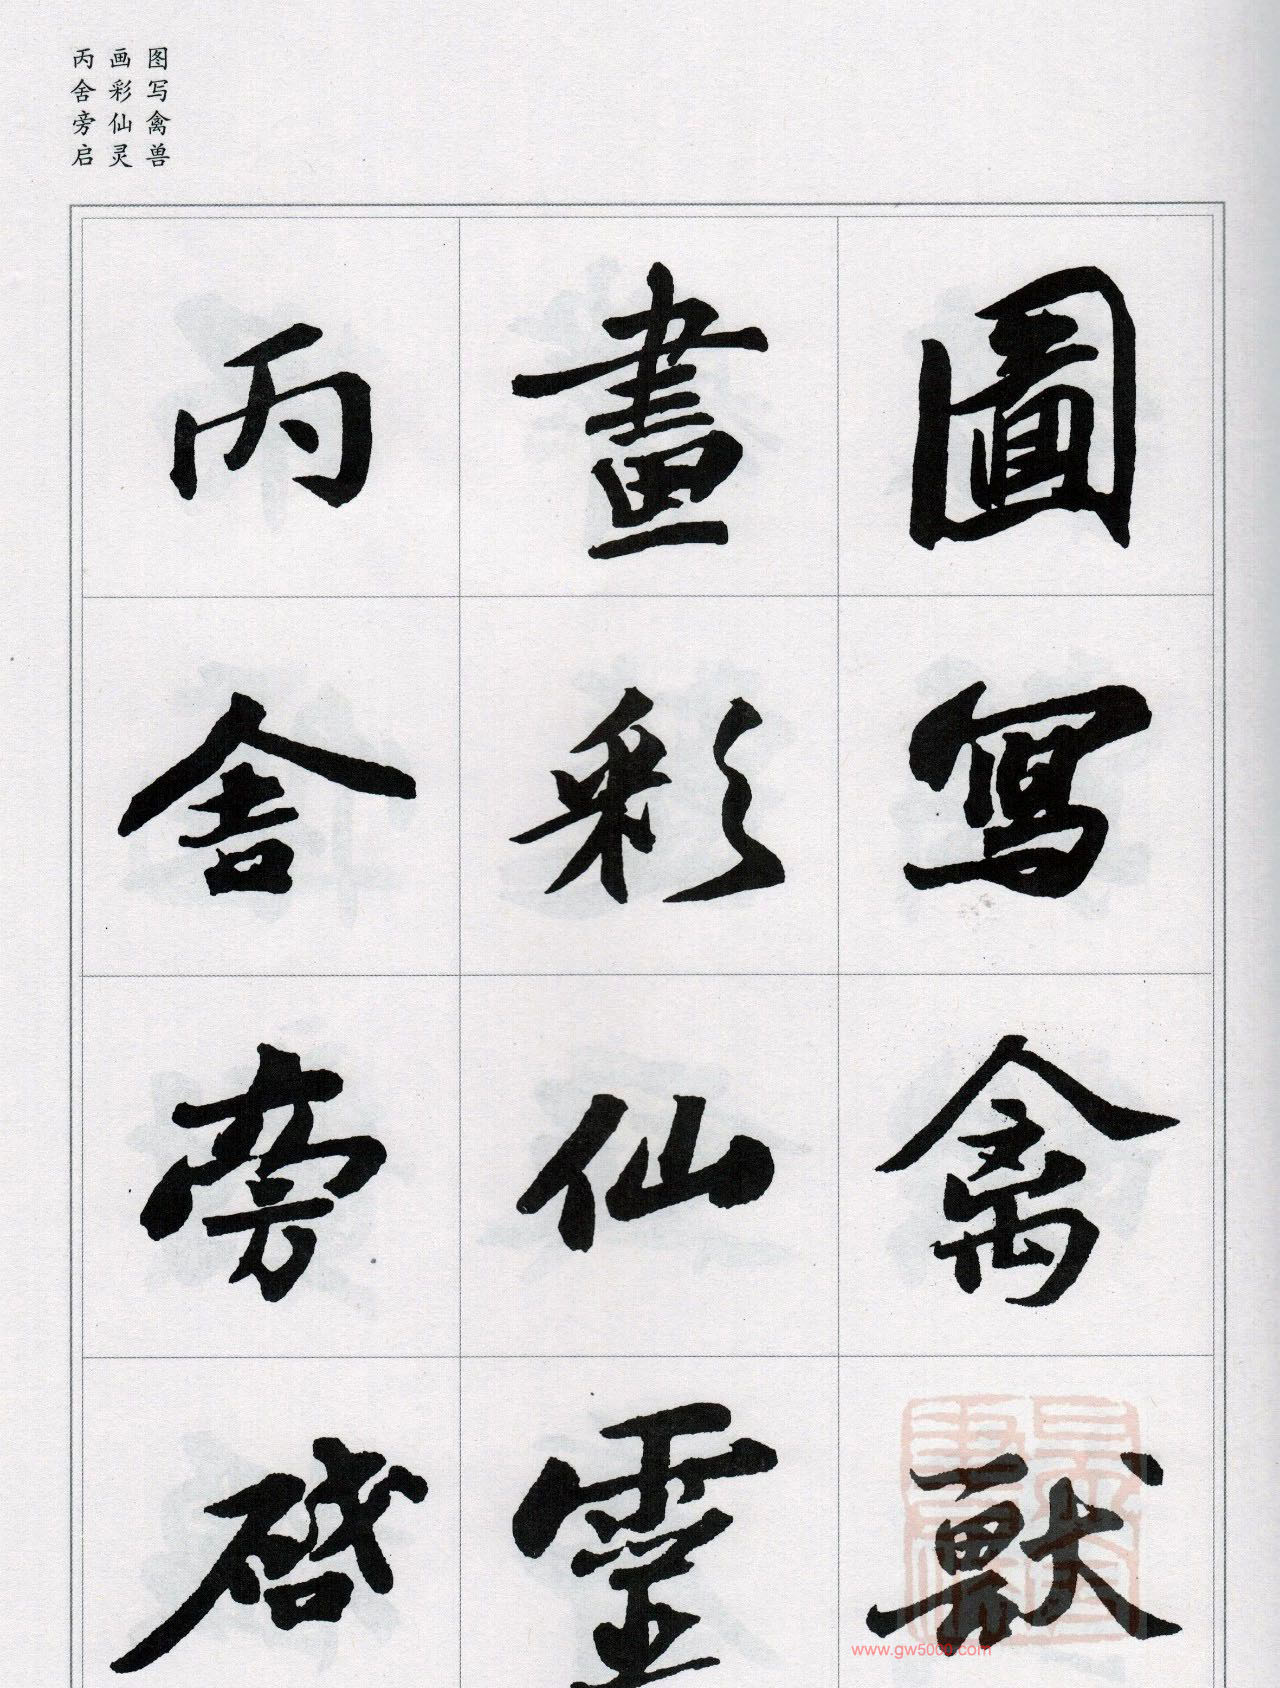 图写禽兽
画彩仙灵
丙舍旁启
圖寫禽獸
畫彩仙靈
丙舍旁啓
www.gw5000.com